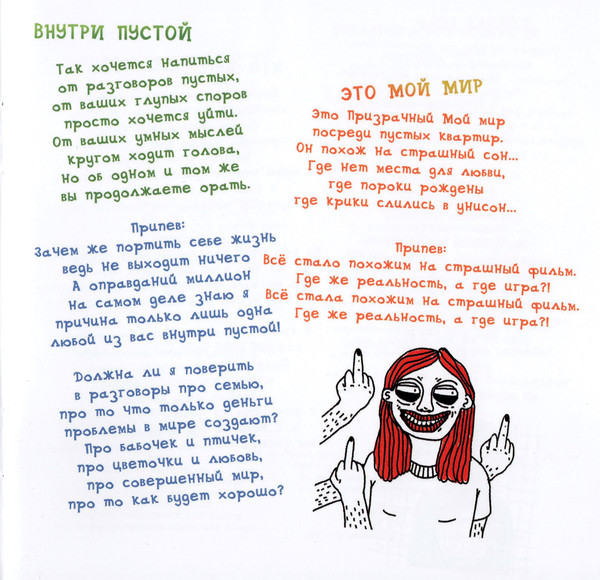 ВНУТРИ ПУСТОЙ
Так хочется напиться
от разговоров пустых,
от ваших глупых споров
просто хочется уйти.
От ваших умных мыслей
кругом ходит голова,
Но об одном и том же
вы продолжаете орать.
Припев:
Зачем же портить себе жизнь
ведь не выходит ничего
А оправданий миллион
на самом деле знаю я
причина только лишь одна
любой из вас внутри пустой!
Должна ли я поверить
в разговоры про семью,
про то что только деньги
проблемы в мире создают?
Про бабочек и птичек,
про цветочки и любовь,
про совершенный мир,
про то как будет хорошо?
ЭТО МОЙ МИР
Это Призрачный Мой мир
посреди пустых квартир.
Он похож на страшный сон...
Где нет места для любви,
где пороки рождены
где крики слились в унисон...
Припев:
Всё стало похожим на страшный фильм.
Где же реальность, а где игра?!
Всё стала похожим на страшный фильм.
Где же реальность, а где игра?!